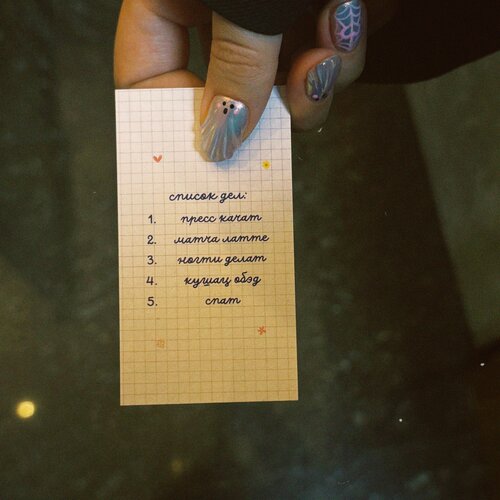 список дел:
1. пресс качат
2. матча латте
3. ногти делат
4. кушац обэд
5. спат